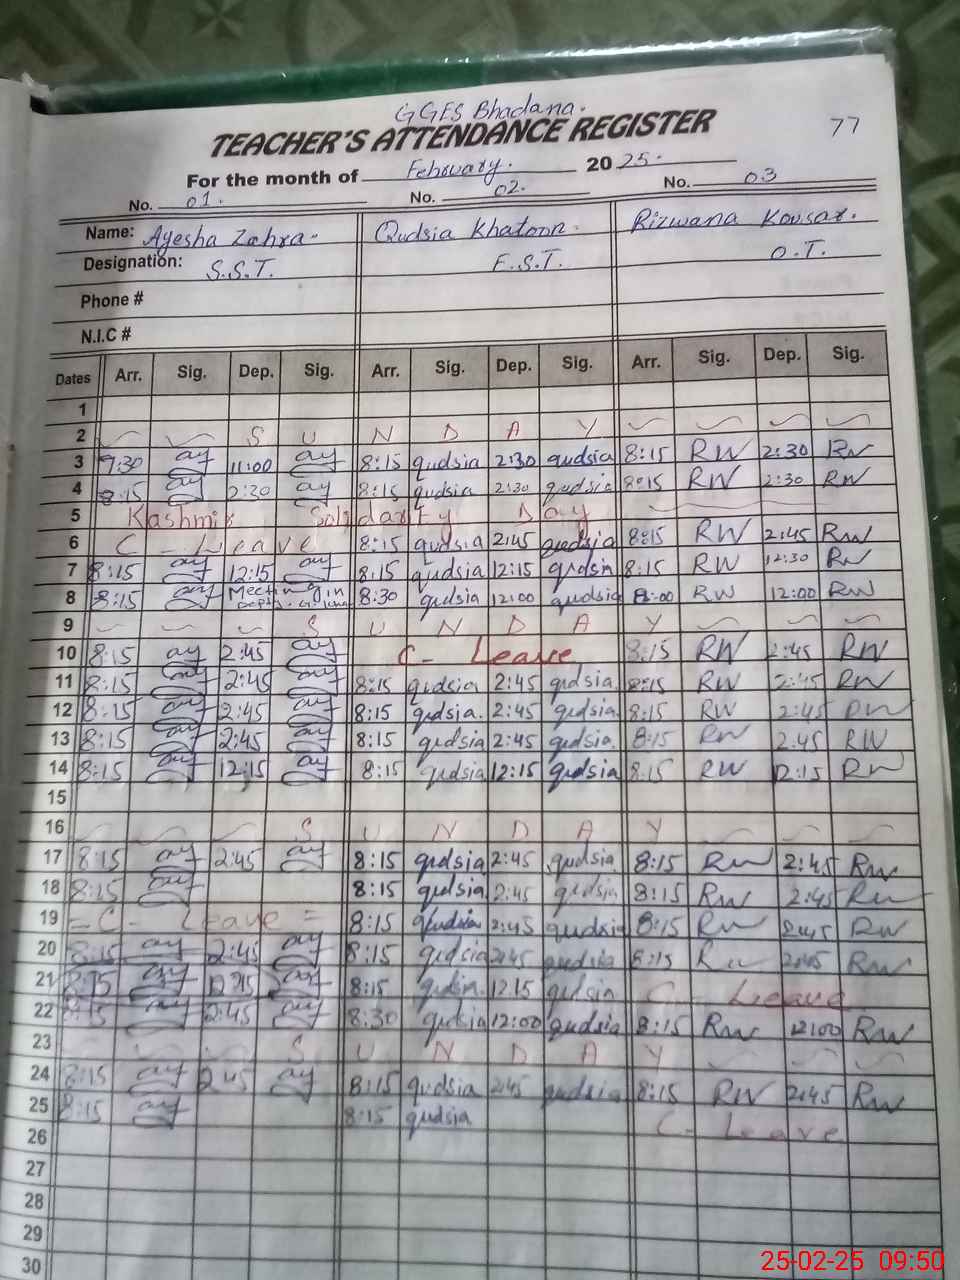 GGES Bhadana.
TEACHER'S ATTENDANCE REGISTER 77
For the month of February. 2025.
No. 01. No. 02. No. 03
Name: Ayesha Zahra. Qudsia Khatoon. Rizwana Kousar.
Designation: S.S.T. E.S.T. O.T.
Phone #
N.I.C #
Dates Arr. Sig. Dep. Sig. Arr. Sig. Dep. Sig. Arr. Sig. Dep. Sig.
1
2 S U N D A Y
3 9:30 ay 11:00 ay 8:15 qudsia 2:30 qudsia 8:15 RW 2:30 RW
4 8:15 ay 2:30 ay 8:15 qudsia 2:30 qudsia 8:15 RW 2:30 RW
5 Kashmir Solidarity Day
6 C - Leave 8:15 qudsia 2:45 qudsia 8:15 RW 2:45 RW
7 8:15 ay 12:15 ay 8:15 qudsia 12:15 qudsia 8:15 RW 12:30 RW
8 8:15 ay Meeting in 8:30 qudsia 12:00 qudsia 8:00 RW 12:00 RW
9 S U N D A Y
10 8:15 ay 2:45 ay C - Leave 8:15 RW 2:45 RW
11 8:15 ay 2:45 ay 8:15 qudsia 2:45 qudsia 8:15 RW 2:45 RW
12 8:15 ay 2:45 ay 8:15 qudsia. 2:45 qudsia. 8:15 RW 2:45 RW
13 8:15 ay 2:45 ay 8:15 qudsia 2:45 qudsia. 8:15 RW 2:45 RW
14 8:15 ay 12:15 ay 8:15 qudsia 12:15 qudsia 8:15 RW 12:15 RW
15
16 S U N D A Y
17 8:15 ay 2:45 ay 8:15 qudsia 2:45 qudsia 8:15 RW 2:45 RW
18 8:15 ay 8:15 qudsia 2:45 qudsia 8:15 RW 2:45 RW
19 = C - Leave = 8:15 qudsia 2:45 qudsia 8:15 RW 2:45 RW
20 8:15 ay 2:45 ay 8:15 qudsia 2:45 qudsia 8:15 RW 2:45 RW
21 8:15 ay 12:15 ay 8:15 qudsia. 12:15 qudsia C - Leave
22 8:15 ay 2:45 ay 8:30 qudsia 12:00 qudsia 8:15 RW 12:00 RW
23 S U N D A Y
24 8:15 ay 2:45 ay 8:15 qudsia 2:45 qudsia 8:15 RW 2:45 RW
25 8:15 ay 8:15 qudsia C - Leave
26
27
28
29
30
25-02-25 09:50